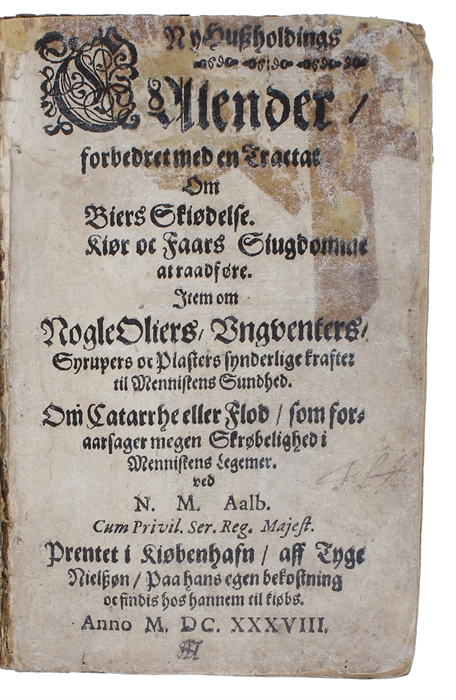 Ny Hußholdings
CAlender /
forbedret med en Tractat
Om
Biers Skiødelse.
Kiør oc Faars Siugdomme
at raadføre.
Item om
Nogle Oliers / Ungventers /
Syrupers oc Plasters synderlige krafter
til Menniskens Sundhed.
Om Catarrhe eller Flod / som for-
aarsager megen Skrøbelighed i
Menniskens Legemer.
ved
N. M. Aalb.
Cum Privil. Ser. Reg. Majest.
Prentet i Kiøbenhafn / aff Tyge
Nielßøn / Paa hans egen bekostning
oc findis hos hannem til kiøbs.
Anno M. DC. XXXVIII.